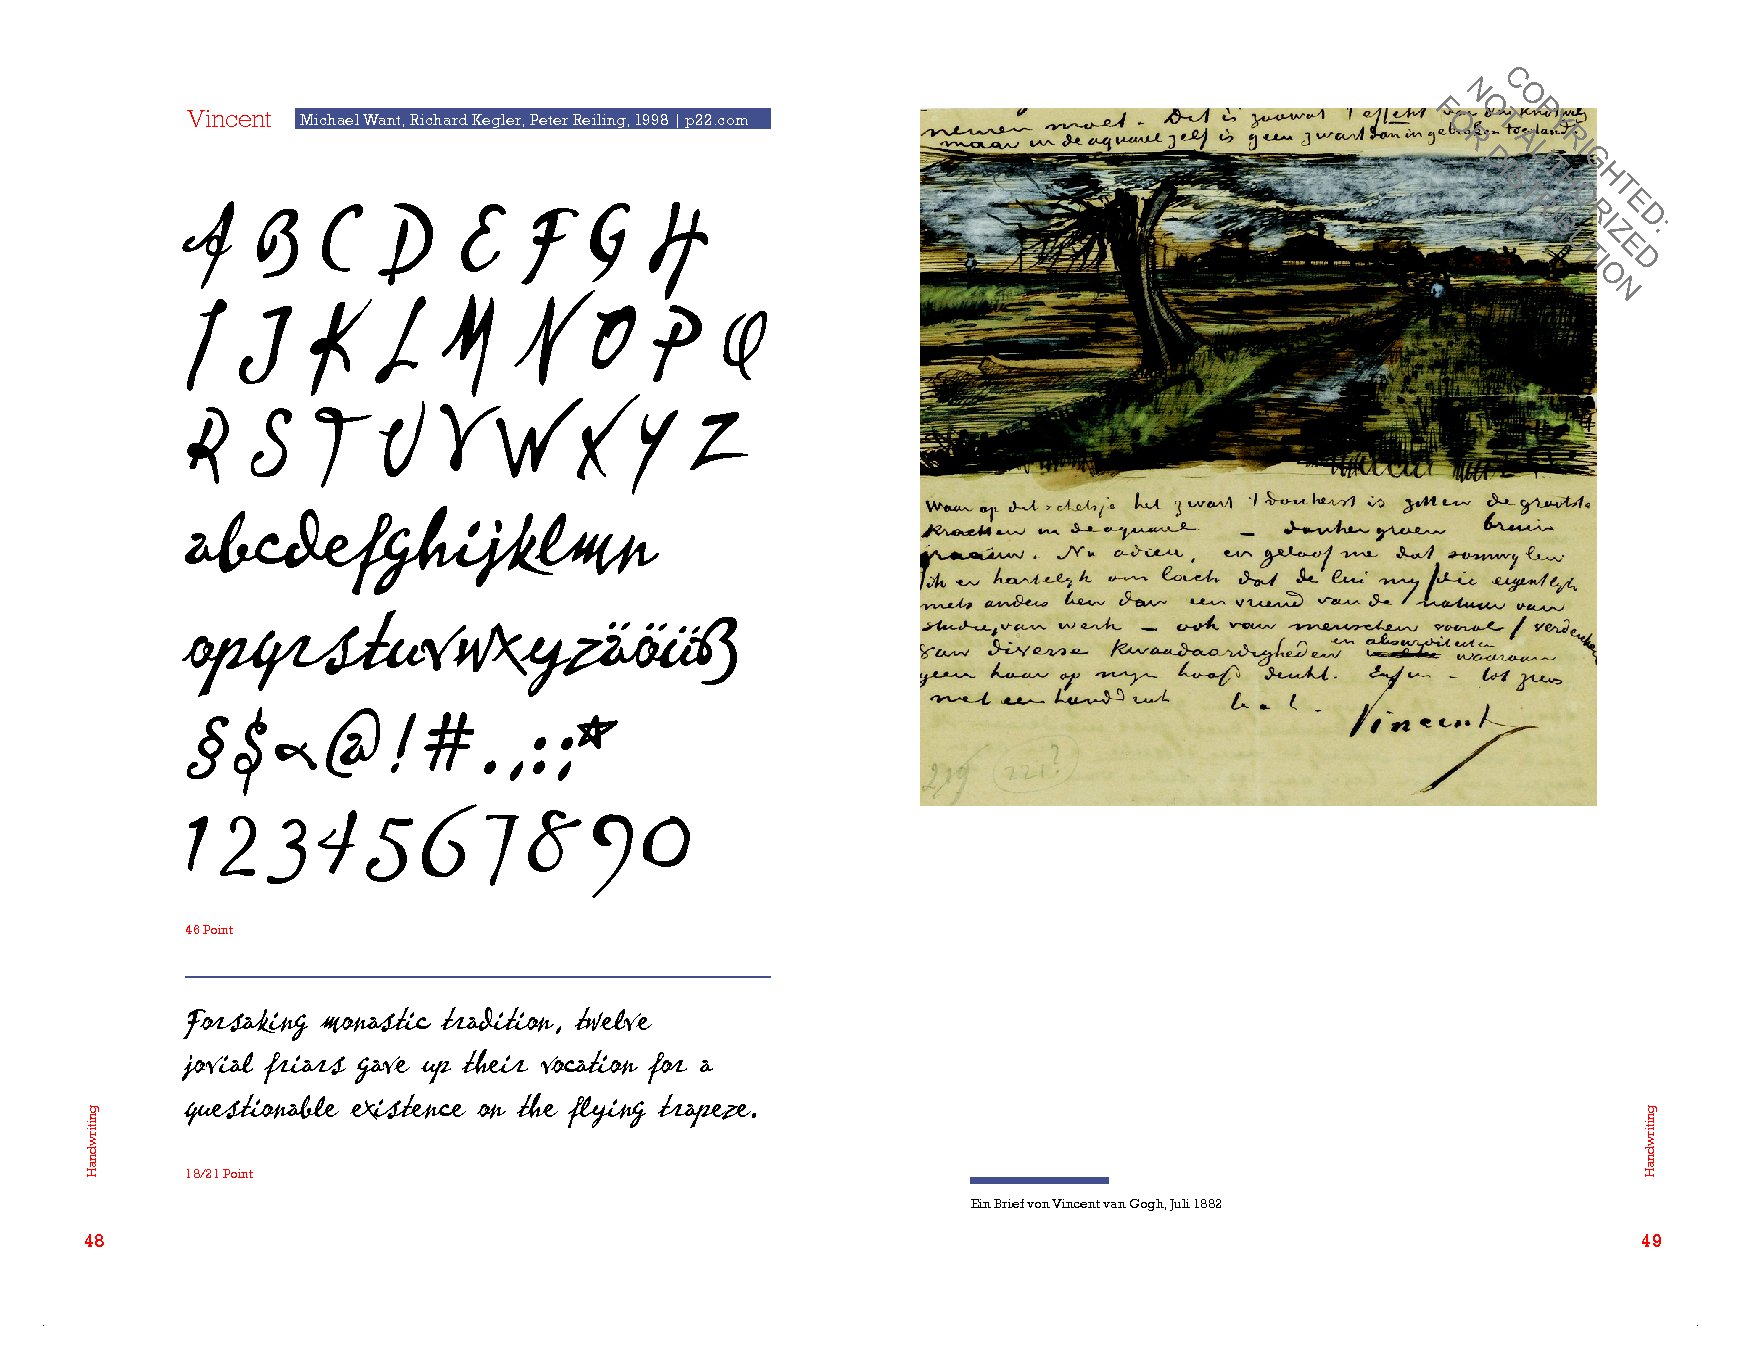 Vincent
Michael Want, Richard Kegler, Peter Reiling, 1998 | p22.com
A B C D E F G H
I J K L M N O P Q
R S T U V W X Y Z
abcdefghijklmn
opqrstuvwxyzäöüß
§$&@!#.,:;*
1234567890
46 Point
Forsaking monastic tradition, twelve
jovial friars gave up their vocation for a
questionable existence on the flying trapeze.
18/21 Point
Handwriting
48
COPYRIGHTED:
NOT AUTHORIZED
FOR DISTRIBUTION
nemen moet. Dit is zoowat 't effekt van den knotwilg
maar in de aquarel zelf is geen zwart dan in gebroken toestand
Waar op dit schetsje het zwart 't donkerst is zitten de grootste
krachten in de aquarel – donkergroen bruin
graauw. Nu adieu, en geloof me dat somwylen
ik er hartelyk om lach dat de lui my die eigentlyk
niets anders ben dan een vriend van de natuur van
studie, van werk – ook van menschen vooral / verdenken
van diverse kwaadaardigheden en absurditeiten waaraan
geen haar op myn hoofd denkt. Enfin – tot ziens
met een handdruk t. à t.
Vincent
219
221?
Ein Brief von Vincent van Gogh, Juli 1882
Handwriting
49